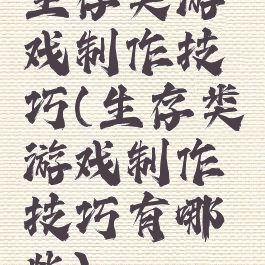 生存类游
戏制作技
巧(生存类
游戏制作
技巧有哪
些)